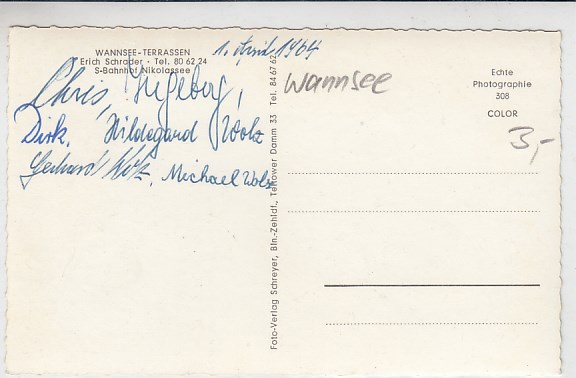 WANNSEE-TERRASSEN
Erich Schrader · Tel. 80 62 24
S-Bahnhof Nikolassee
1. April 1964
Chris, Ingeborg,
Dirk, Hildegard Wolz
Gerhard Wolz, Michael Wolz
Foto-Verlag Schreyer, Bln.-Zehldf., Teltower Damm 33 Tel. 84 67 62
Wannsee
Echte
Photographie
308
COLOR
3,-